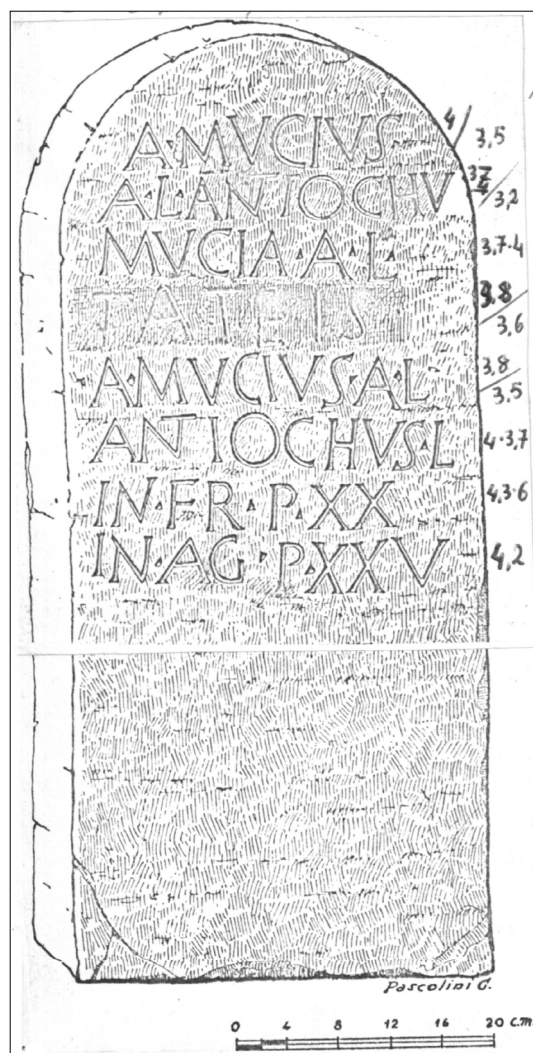 A·MVCIVS
A·L·ANTIOCHV
MVCIA·A·L·
TATEIS
A·MVCIVS·A·L
ANTIOCHVS·L
IN·FR·P·XX
IN·AG·P·XXV
4/3,5
3,2
3,7·4
3,8/3,6
3,8/3,5
4·3,7
4,3·6
4,2
Pascolini G.
0 4 8 12 16 20 c.m.